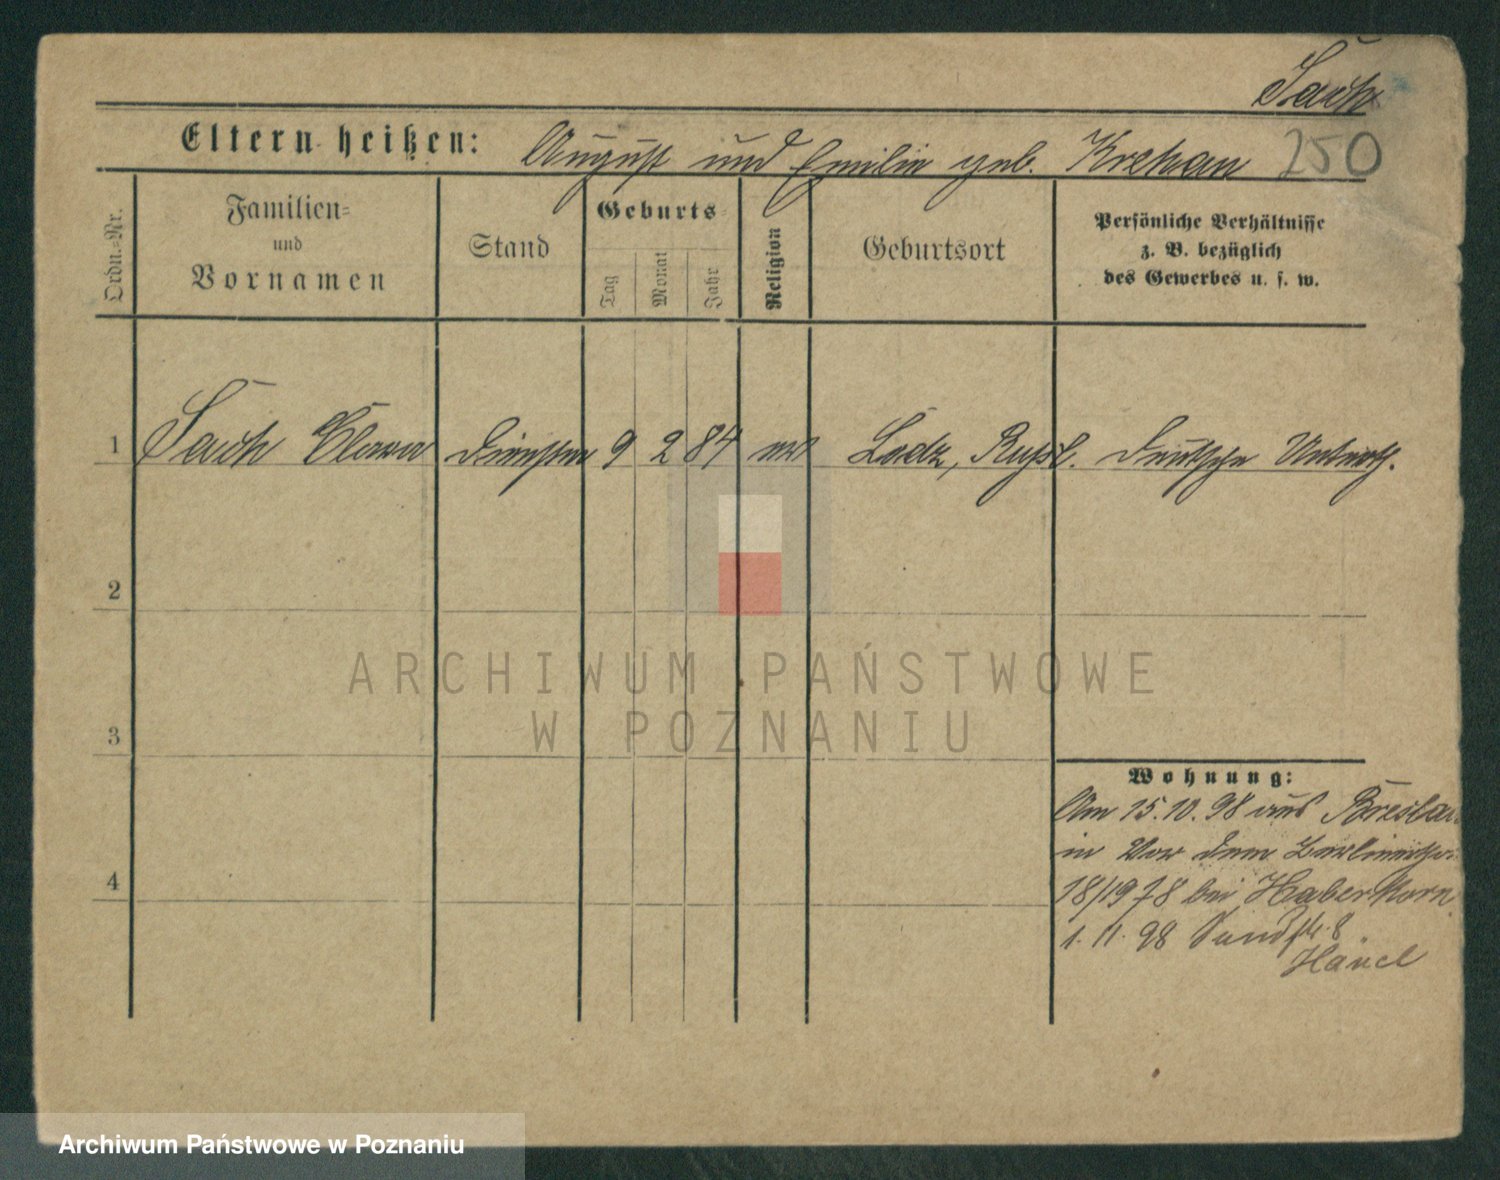 Sach
Eltern heißen: August und Emilie geb. Krehan 250
Ordn.-Nr.
Familien-
und
Vornamen
Stand
Geburts-
Tag
Monat
Jahr
Religion
Geburtsort
Persönliche Verhältnisse
z. B. bezüglich
des Gewerbes u. s. w.
1 Clara 9 2 84 Lodz, Russl. Deutsche
2
3
4
Wohnung:
Am 15.10.98 aus Breslau
in Vor dem
18/1978 bei Haberkorn
1. 11. 98 Sandstr. 8
Hänel
ARCHIWUM PAŃSTWOWE
W POZNANIU
Archiwum Państwowe w Poznaniu